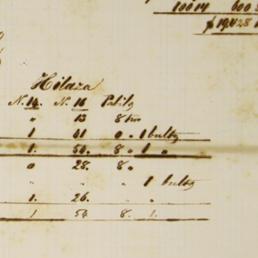 10014 600
$19,428
Hilaza
N. 14. N. 16 Pabilo
" 13 8
1 41 0 " 1 bulto
1. 54. 8 " 1 "
0 28. 8 "
" " " 1 bulto
1. 26. " "
1 54 8. 1.